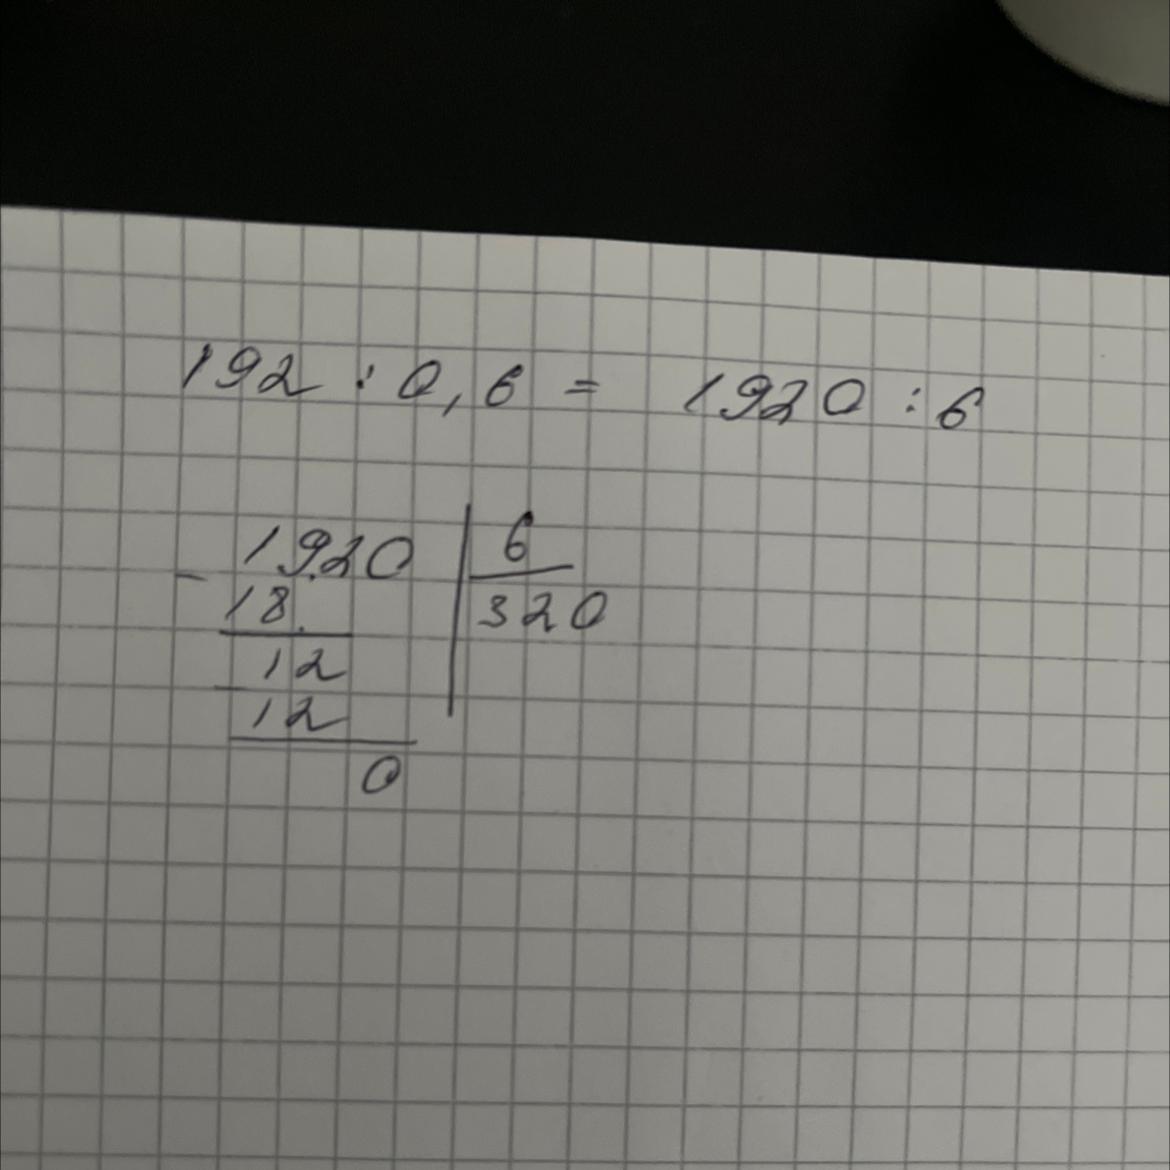 192 : 0,6 = 1920 : 6
- 1920 | 6
18 | 320
12
- 12
0